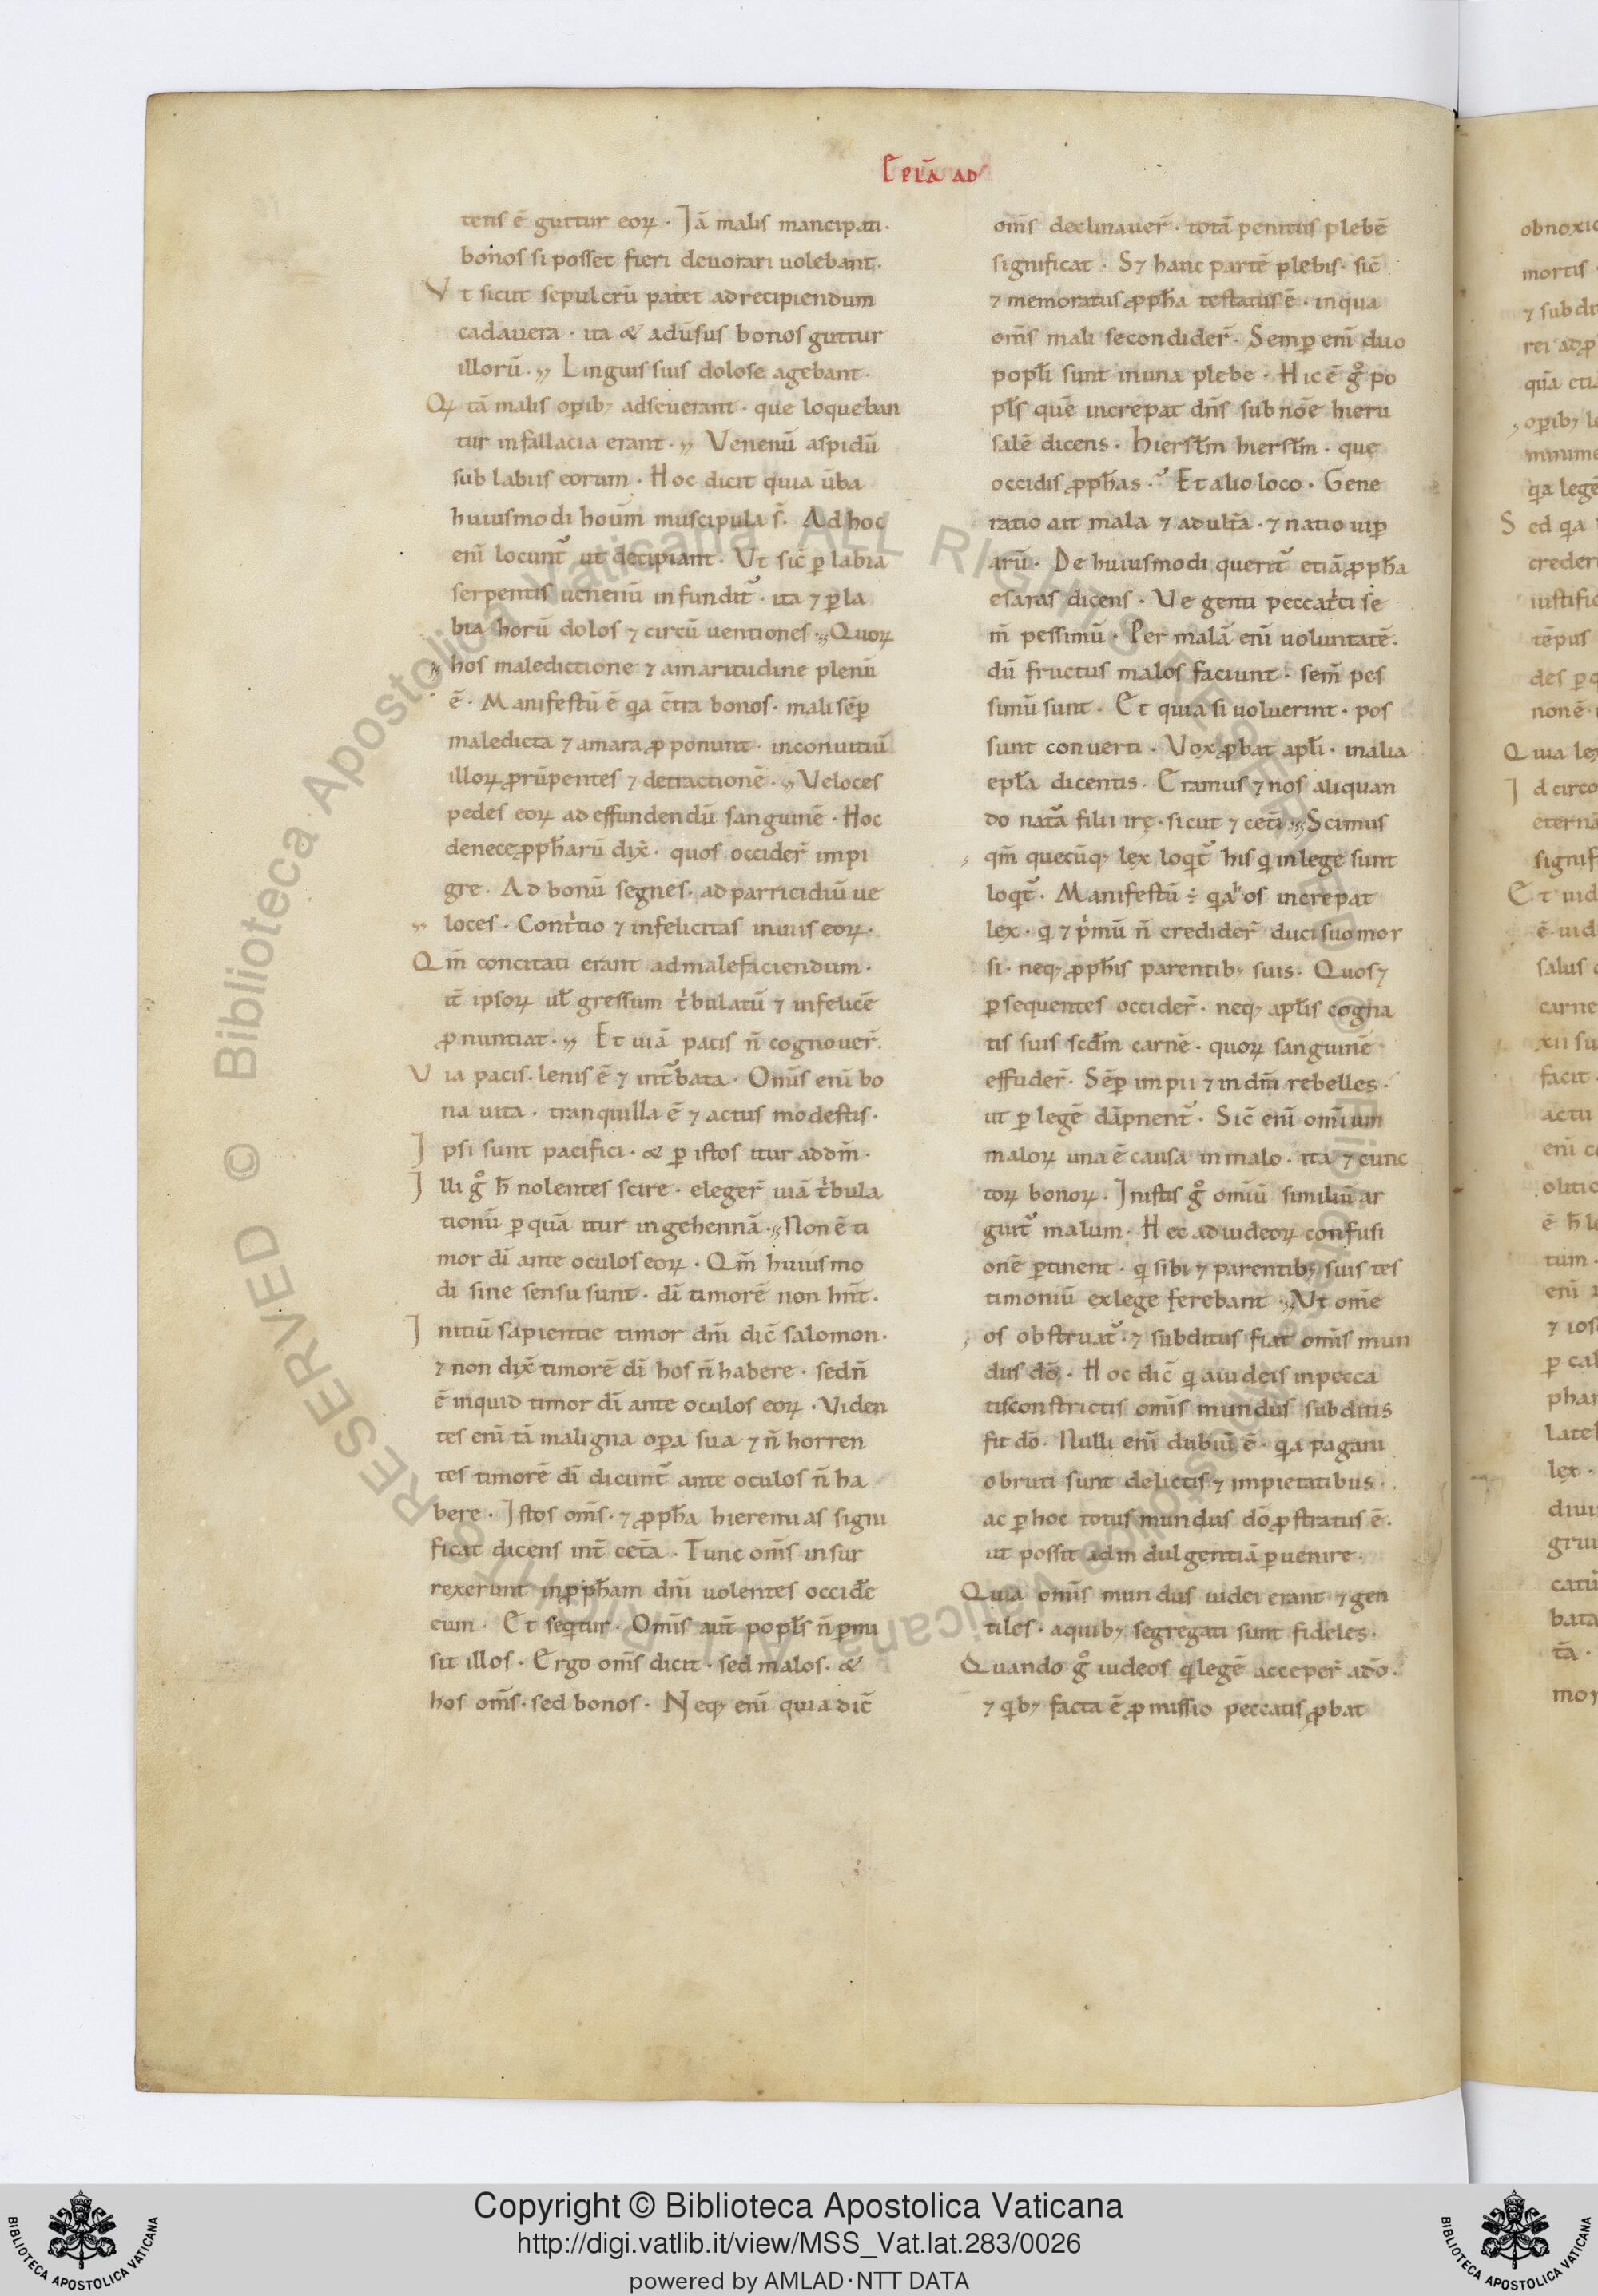 Epła ad
tens ē guttur eoꝝ · Jā malis mancipati ·
bonos si posset fieri deuorari uolebant ·
Vt sicut sepulcrū patet ad recipiendum
cadauera · ita & adūsus bonos guttur
illorū · Linguis suis dolose agebant ·
Qꝝ tā malis opib; adseuerant · que loqueban
tur in fallacia erant · Venenū aspidū
sub labiis eorum · Hoc dicit quia ūba
huiusmodi houm muscipula s̄ · Ad hoc
enī locunt̄ ut decipiant · Vt sic̄ ꝑ labia
serpentis uenenū infundit̄ · ita ⁊ ꝑ la
bia horū dolos ⁊ circū uentiones · Quoꝝ
hos maledictione ⁊ amaritudine plenū
ē · Manifestū ē qia c̄tra bonos · mali sēꝑ
maledicta ⁊ amara ꝓponunt · in conuitiū
illoꝝ ꝓrūpentes ⁊ detractionē · Veloces
pedes eoꝝ ad effundendū sanguinē · Hoc
de nece ꝓpħarū dix̄ · quos occider̄ impi
gre · Ad bonū segnes · ad parricidiū ue
loces · Contⁱtio ⁊ infelicitas in uiis eoꝝ ·
Qm̄ concitati erant ad malefaciendum ·
it̄ ipsoꝝ ul̄ gressum tⁱbulatū ⁊ infelicē
ꝓnuntiat · Et uiā pacis n̄ cognouer̄ ·
Via pacis · lenis ē ⁊ int̄bata · Omīs enī bo
na uita · tranquilla ē ⁊ actus modestis ·
Jpsi sunt pacifici · & ꝑ istos itur ad dm̄ ·
Jlli g̊ h̄ nolentes scire · eleger̄ uiā tⁱbula
tionū ꝑ quā itur in gehennā · Non ē ti
mor dī ante oculos eoꝝ · Qm̄ huiusmo
di sine sensu sunt · dī timorē non hn̄t ·
Jnitiū sapientie timor dn̄i dic̄ salomon ·
⁊ non dix̄ timorē dī hos n̄ habere · sed n̄
ē inquid timor dī ante oculos eoꝝ · Viden
tes enī tā maligna oꝑa sua ⁊ n̄ horren
tes timorē dī dicunt̄ ante oculos n̄ ha
bere · Jstos om̄s · ⁊ ꝓpħa hieremias signi
ficat dicens int̄ cet̄a · Tunc om̄s insur
rexerunt in ꝓpħam dn̄i uolentes occidē
eum · Et seqⁱtur · Omīs aūt popls̄ n̄ ꝑmi
sit illos · Ergo om̄s dicit · sed malos · &
hos om̄s · sed bonos · Neq; enī quia dic̄
om̄s declinauer̄ · totā penitus plebē
significat · S⁊ hanc partē plebis · sic̄
⁊ memoratus ꝓpħa testatus ē · in qua
om̄s mali se condider̄ · Semꝑ enī duo
poplī sunt in una plebe · Hic ē g̊ po
pls̄ quē increpat dn̄s sub noē hieru
salē dicens · Hierslm̄ hierslm̄ · que
occidis ꝓpħas · Et alio loco · Gene
ratio ait mala ⁊ adult̄a · ⁊ natio uiꝑ
arū · De huiusmodi querit̄ etiā ꝓpħa
esaias dicens · Ve genti peccatⁱci se
m̄ pessimū · Per malā enī uoluntatē ·
dū fructus malos faciunt · sem̄ pes
simū sunt · Et quia si uoluerint · pos
sunt conuerti · Vox ꝓbat aplī · in alia
epła dicentis · Eramus ⁊ nos aliquan
do nat̄a filii ire · sicut ⁊ cet̄i · Scimus
qm̄ quecūq; lex loqⁱt̄ his qⁱ in lege sunt
loqⁱt̄ · Manifestū ÷ qia hos increpat
lex · qⁱ ⁊ pⁱmū n̄ credider̄ duci suo mor
si · neq; ꝓpħis parentib; suis · Quos ⁊
ꝑsequentes occider̄ · neq; aplīs cogna
tis suis scdm̄ carnē · quoꝝ sanguinē
effuder̄ · Sēꝑ impii ⁊ in dm̄ rebelles ·
ut ꝑ legē dāpnent̄ · Sic̄ enī omīum
maloꝝ una ē causa in malo · ita ⁊ cunc
toꝝ bonoꝝ · Jn istis g̊ omīū similiū ar
guit̄ malum · Hec ad iudeoꝝ confusi
onē ꝑtinent · qⁱ sibi ⁊ parentib; suis tes
timoniū ex lege ferebant · Vt omē
os obstruat̄ · ⁊ subditus fiat omīs mun
dus dō · Hoc dic̄ qⁱa iudeis in pecca
tis constrictis omīs mundus subditus
fit dō · Nulli enī dubiū ē · qⁱa pagani
obruti sunt delictis ⁊ impietatibus ·
ac ꝑ hoc totus mundus dō ꝓstratus ē ·
ut possit ad indulgentiā ꝑuenire ·
Quia omīs mundus iudei erant ⁊ gen
tiles · a quib; segregati sunt fideles ·
Quando g̊ iudeos qⁱ legē acceper̄ a dō ·
⁊ qⁱb; facta ē ꝓmissio peccatis ꝓbat
Copyright © Biblioteca Apostolica Vaticana
http://digi.vatlib.it/view/MSS_Vat.lat.283/0026
powered by AMLAD·NTT DATA